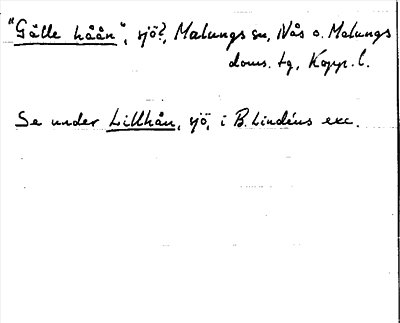 "Gälle håån", sjö?, Malungs sn, Nås o. Malungs
doms. tg, Kopp. l.
Se under Lillhån, sjö, i B. Lindéns exc.